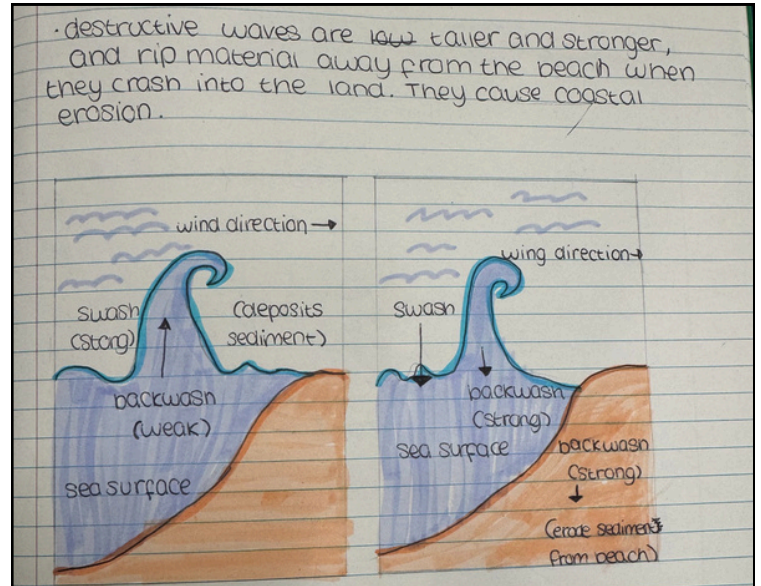 · destructive waves are low taller and stronger,
and rip material away from the beach when
they crash into the land. They cause coastal
erosion.
wind direction →
swash
(stong)
(deposits
sediment)
backwash
(weak)
sea surface
wing direction→
swash
backwash
(strong)
sea surface
backwash
(strong)
(erode sediment
from beach)